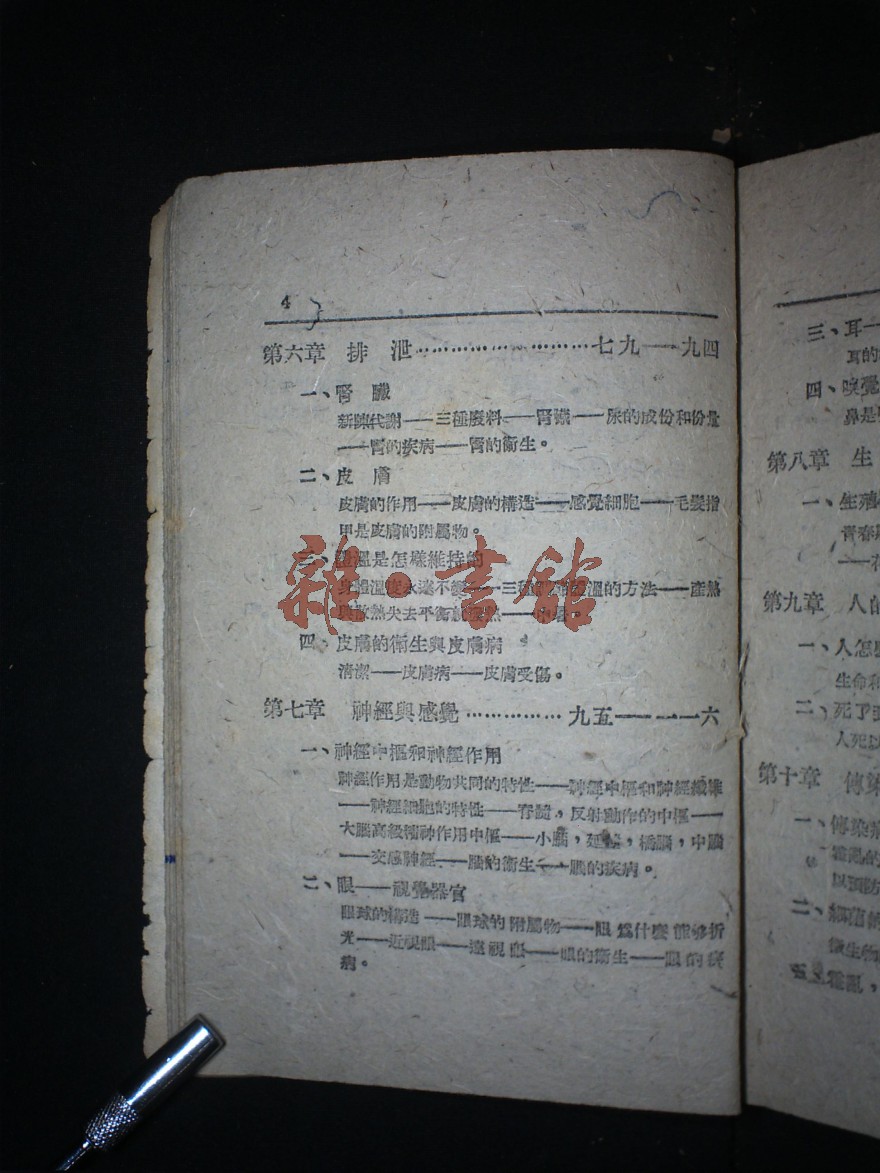 4
第六章 排 泄…………………………七九——九四
一、腎 臟
新陳代謝——三種廢料——腎臟——尿的成份和份量
——腎的疾病——腎的衛生。
二、皮 膚
皮膚的作用——皮膚的構造——感覺細胞——毛髮指
甲是皮膚的附屬物。
三、體溫是怎樣維持的
身體溫度永遠不變——三種 溫的方法——產熱
散熱失去平衡 熱——
四、皮膚的衛生與皮膚病
清潔——皮膚病——皮膚受傷。
第七章 神經與感覺……………九五——一一六
一、神經中樞和神經作用
神經作用是動物共同的特性——神經中樞和神經纖維
——神經細胞的特性——脊髓，反射動作的中樞——
大腦高級精神作用中樞——小腦，延髓，橋腦，中腦
——交感神經——腦的衛生——腦的疾病。
二、眼——視覺器官
眼球的構造——眼球的附屬物——眼爲什麼能够折
光——近視眼——遠視眼——眼的衛生——眼的疾
病。
雜·書館
三、耳—
耳的
四、嗅覺
鼻是
第八章 生
一、生殖
青春
——花
第九章 人的
一、人怎
生命和
二、死了
人死以
第十章 傳染
一、傳染病
霍亂的
以預防
二、細菌的
微生物
霍亂，